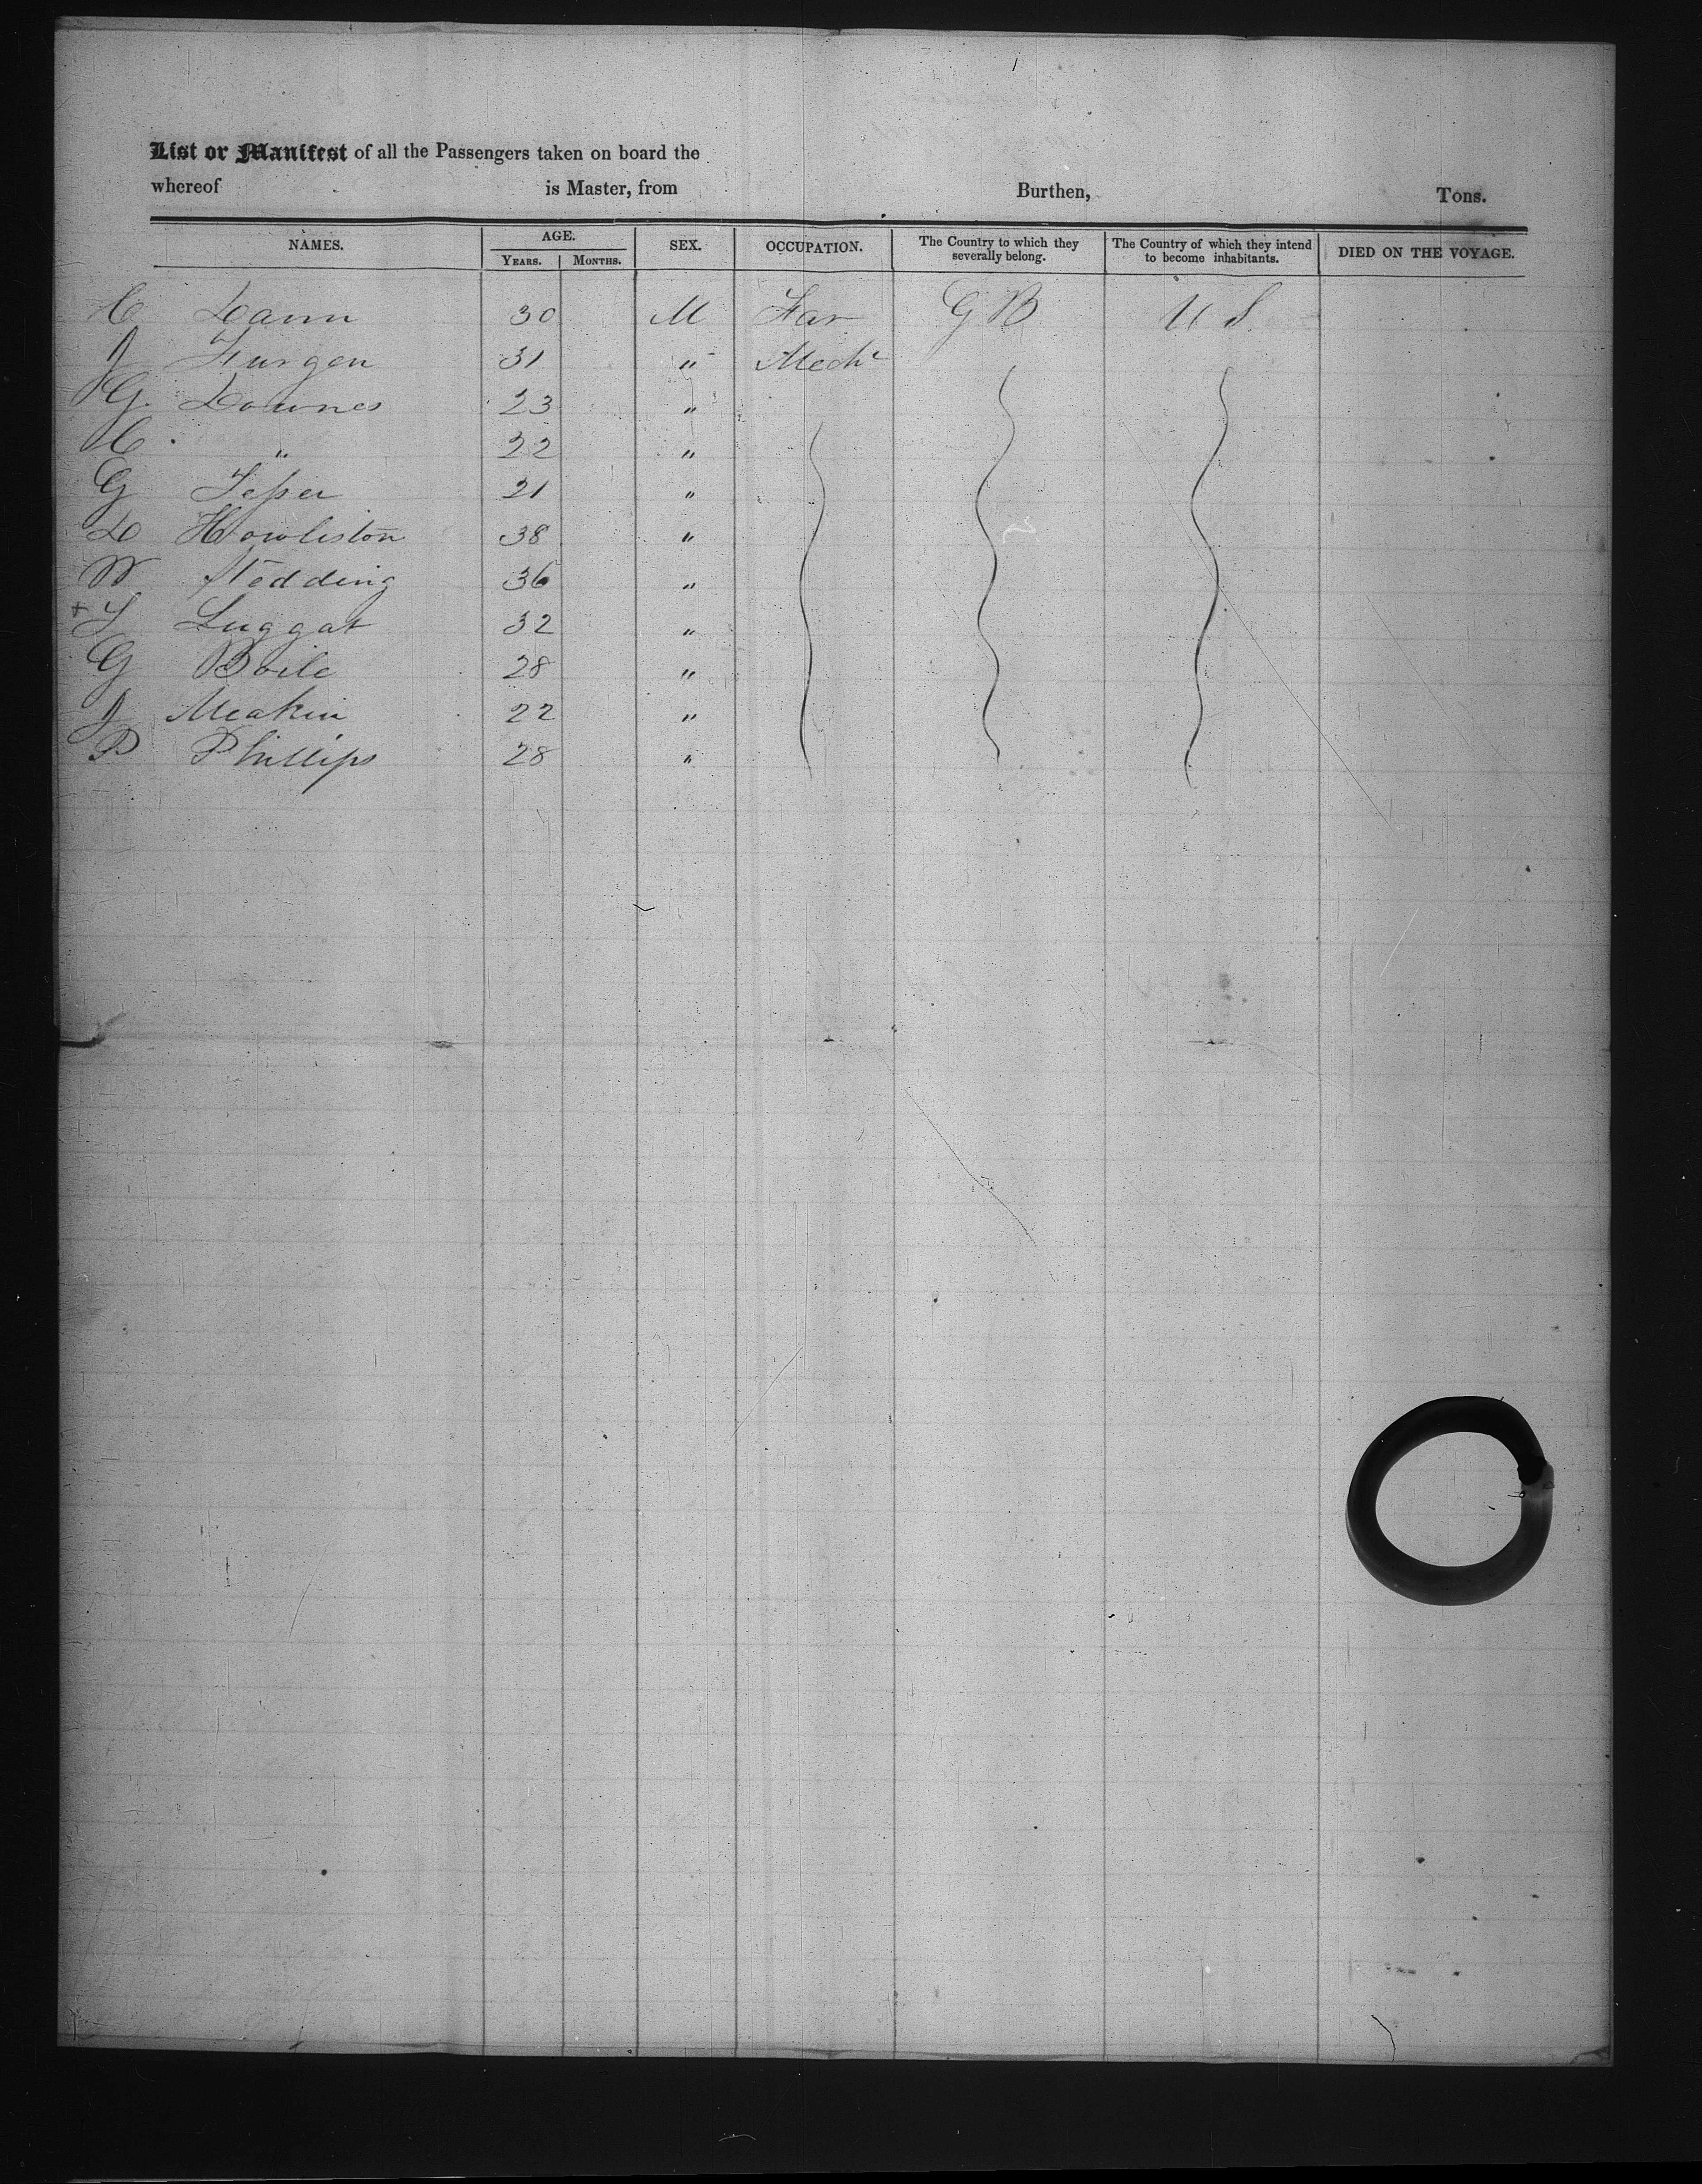 List or Manifest of all the Passengers taken on board the
whereof is Master, from Burthen, Tons.
NAMES. AGE. YEARS. MONTHS. SEX. OCCUPATION. The Country to which they severally belong. The Country of which they intend to become inhabitants. DIED ON THE VOYAGE.
C Dann 30 M Far G B U S.
J Furgen 31 " Mechc
G. Downes 23 "
C " 22 "
G 21 "
D Howliston 38 "
W Stedding 36 "
+ Luggat 32 "
G Boile 28 "
J Meakin 22 "
P Phillips 28 "